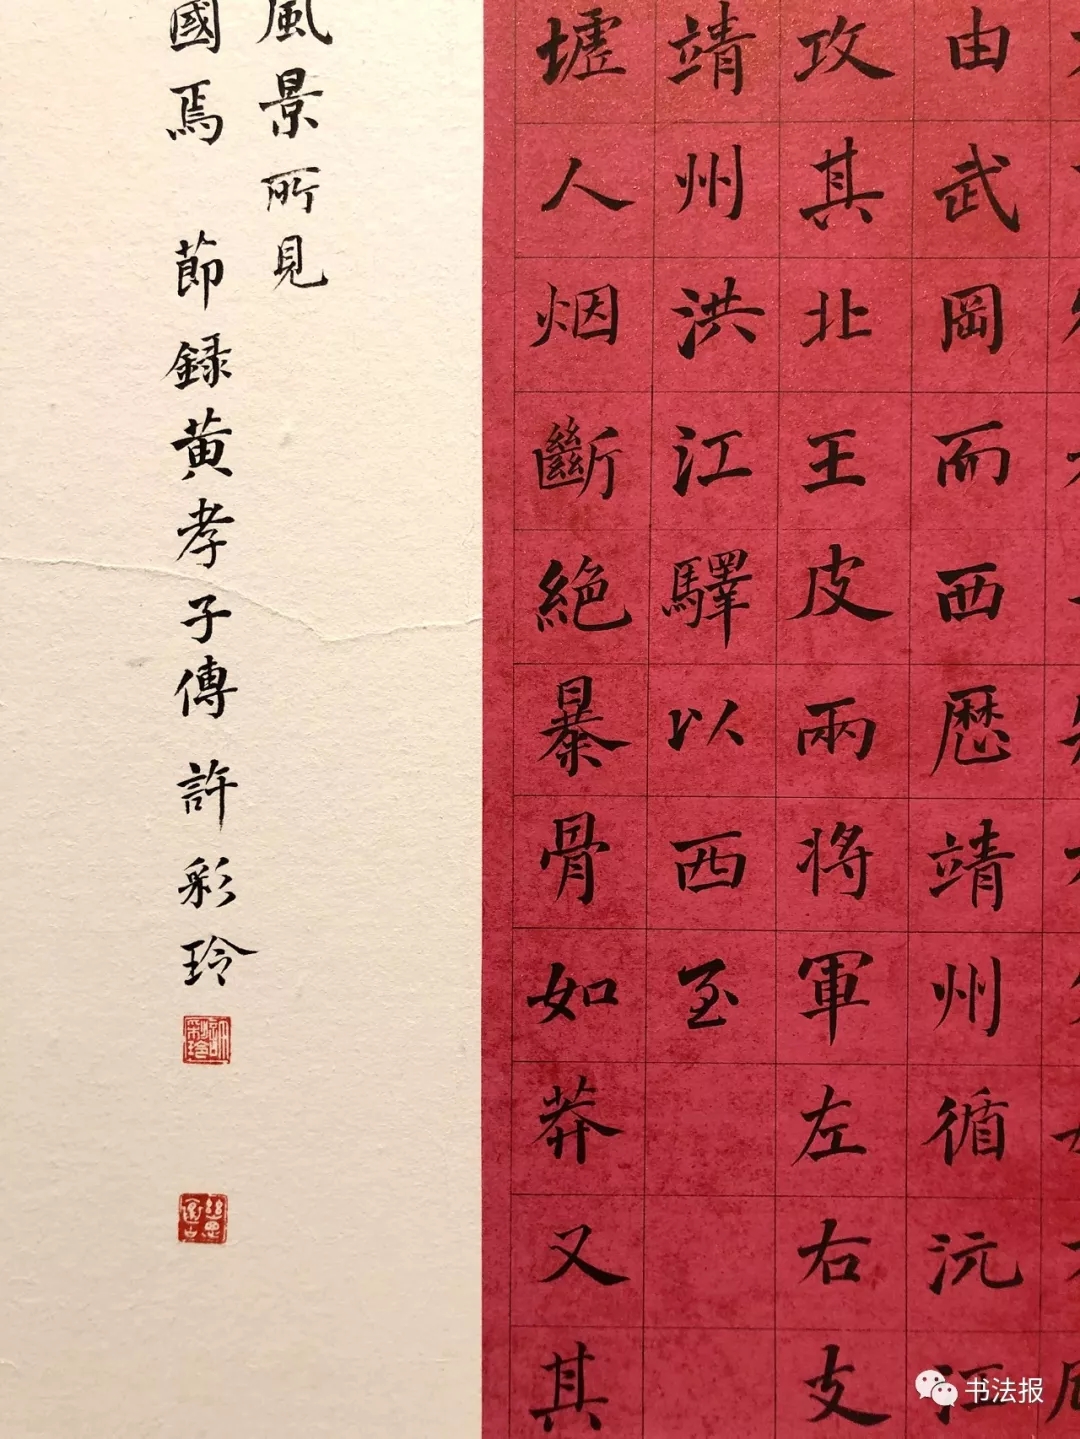 由武岡而西歷靖州循沅江
攻其北王皮兩將軍左右支
靖州洪江驛以西至
墟人烟斷絕暴骨如莽又其
風景所見
國焉 節録黄孝子傳 許彩玲
许彩玲
书法报